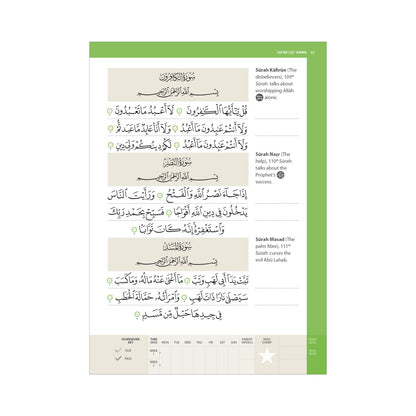 22
سُورَةُ الكَافِرُونَ
بِسْمِ اللَّهِ الرَّحْمَٰنِ الرَّحِيمِ
قُلْ يَٰٓأَيُّهَا ٱلْكَٰفِرُونَ لَآ أَعْبُدُ مَا تَعْبُدُونَ
وَلَآ أَنتُمْ عَٰبِدُونَ مَآ أَعْبُدُ وَلَآ أَنَا۠ عَابِدٌ مَّا عَبَدتُّمْ
وَلَآ أَنتُمْ عَٰبِدُونَ مَآ أَعْبُدُ لَكُمْ دِينُكُمْ وَلِىَ دِينِ
Sūrah Kāfirūn (The
disbelievers), 109th
Sūrah: talks about
worshipping Allāh
alone.
سُورَةُ النَّصْرِ
بِسْمِ اللَّهِ الرَّحْمَٰنِ الرَّحِيمِ
إِذَا جَآءَ نَصْرُ ٱللَّهِ وَٱلْفَتْحُ وَرَأَيْتَ ٱلنَّاسَ
يَدْخُلُونَ فِى دِينِ ٱللَّهِ أَفْوَاجًا فَسَبِّحْ بِحَمْدِ رَبِّكَ
وَٱسْتَغْفِرْهُ إِنَّهُۥ كَانَ تَوَّابًۢا
Sūrah Naṣr (The
help), 110th Sūrah:
talks about the
Prophet's
success.
سُورَةُ المَسَدِ
بِسْمِ اللَّهِ الرَّحْمَٰنِ الرَّحِيمِ
تَبَّتْ يَدَآ أَبِى لَهَبٍ وَتَبَّ مَآ أَغْنَىٰ عَنْهُ مَالُهُۥ وَمَا كَسَبَ
سَيَصْلَىٰ نَارًا ذَاتَ لَهَبٍ وَٱمْرَأَتُهُۥ حَمَّالَةَ ٱلْحَطَبِ
فِى جِيدِهَا حَبْلٌ مِّن مَّسَدٍۭ
Sūrah Masad (The
palm fibre), 111th
Sūrah: curses the
evil Abū Lahab.
HOMEWORK KEY
TIME
MON TUE WED THU FRI SAT SUN
PARENT
PAGE
STAMP
WEEK
1
WEEK
2